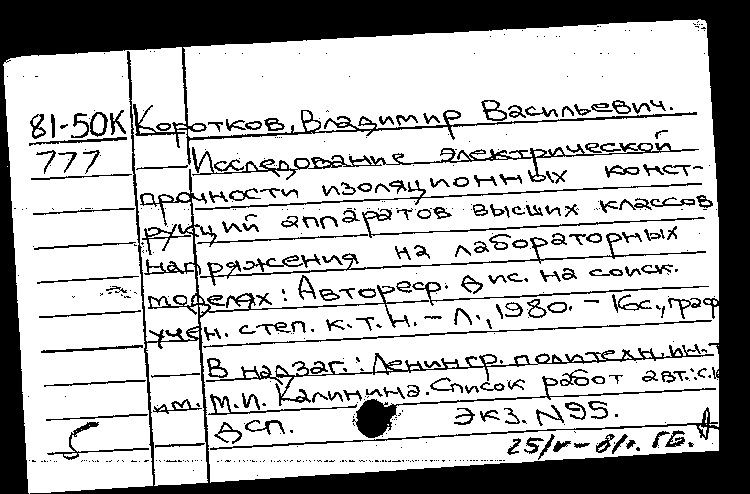 81-50К Коротков, Владимир Васильевич.
777 Исследование электрической
прочности изоляционных конст-
рукций аппаратов высших классов
напряжения на лабораторных
моделях: Автореф. дис. на соиск.
учен. степ. к. т. н. - Л., 1980. - 16с., граф
В надзаг.: Ленингр. политехн. ин-т
им. М.И. Калинина. Список работ авт.: с.
ДСП. ЭКЗ. N95.
5 25/V-81г. ГБ.